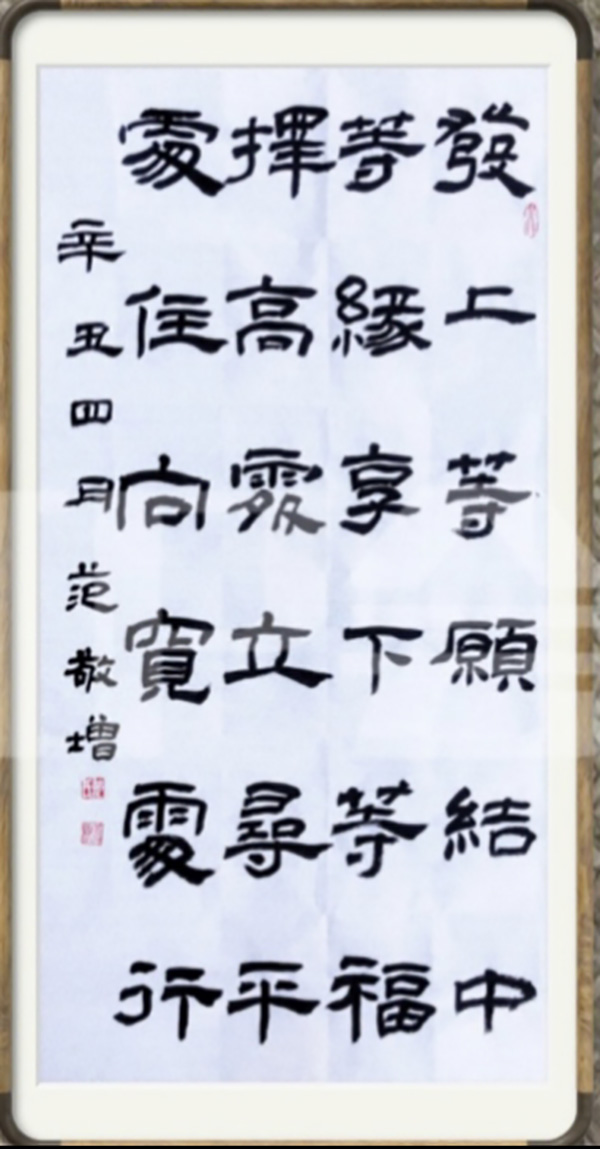 發上等願結中
等緣享下等福
擇高處立尋平
處住向寬處行
辛丑四月范敬增